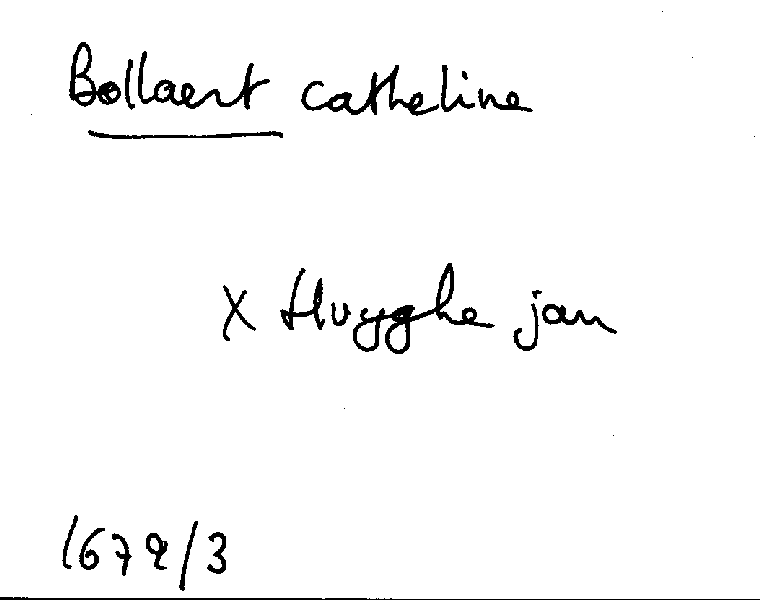 Bollaert catheline
X Huyghe jan
1672/3